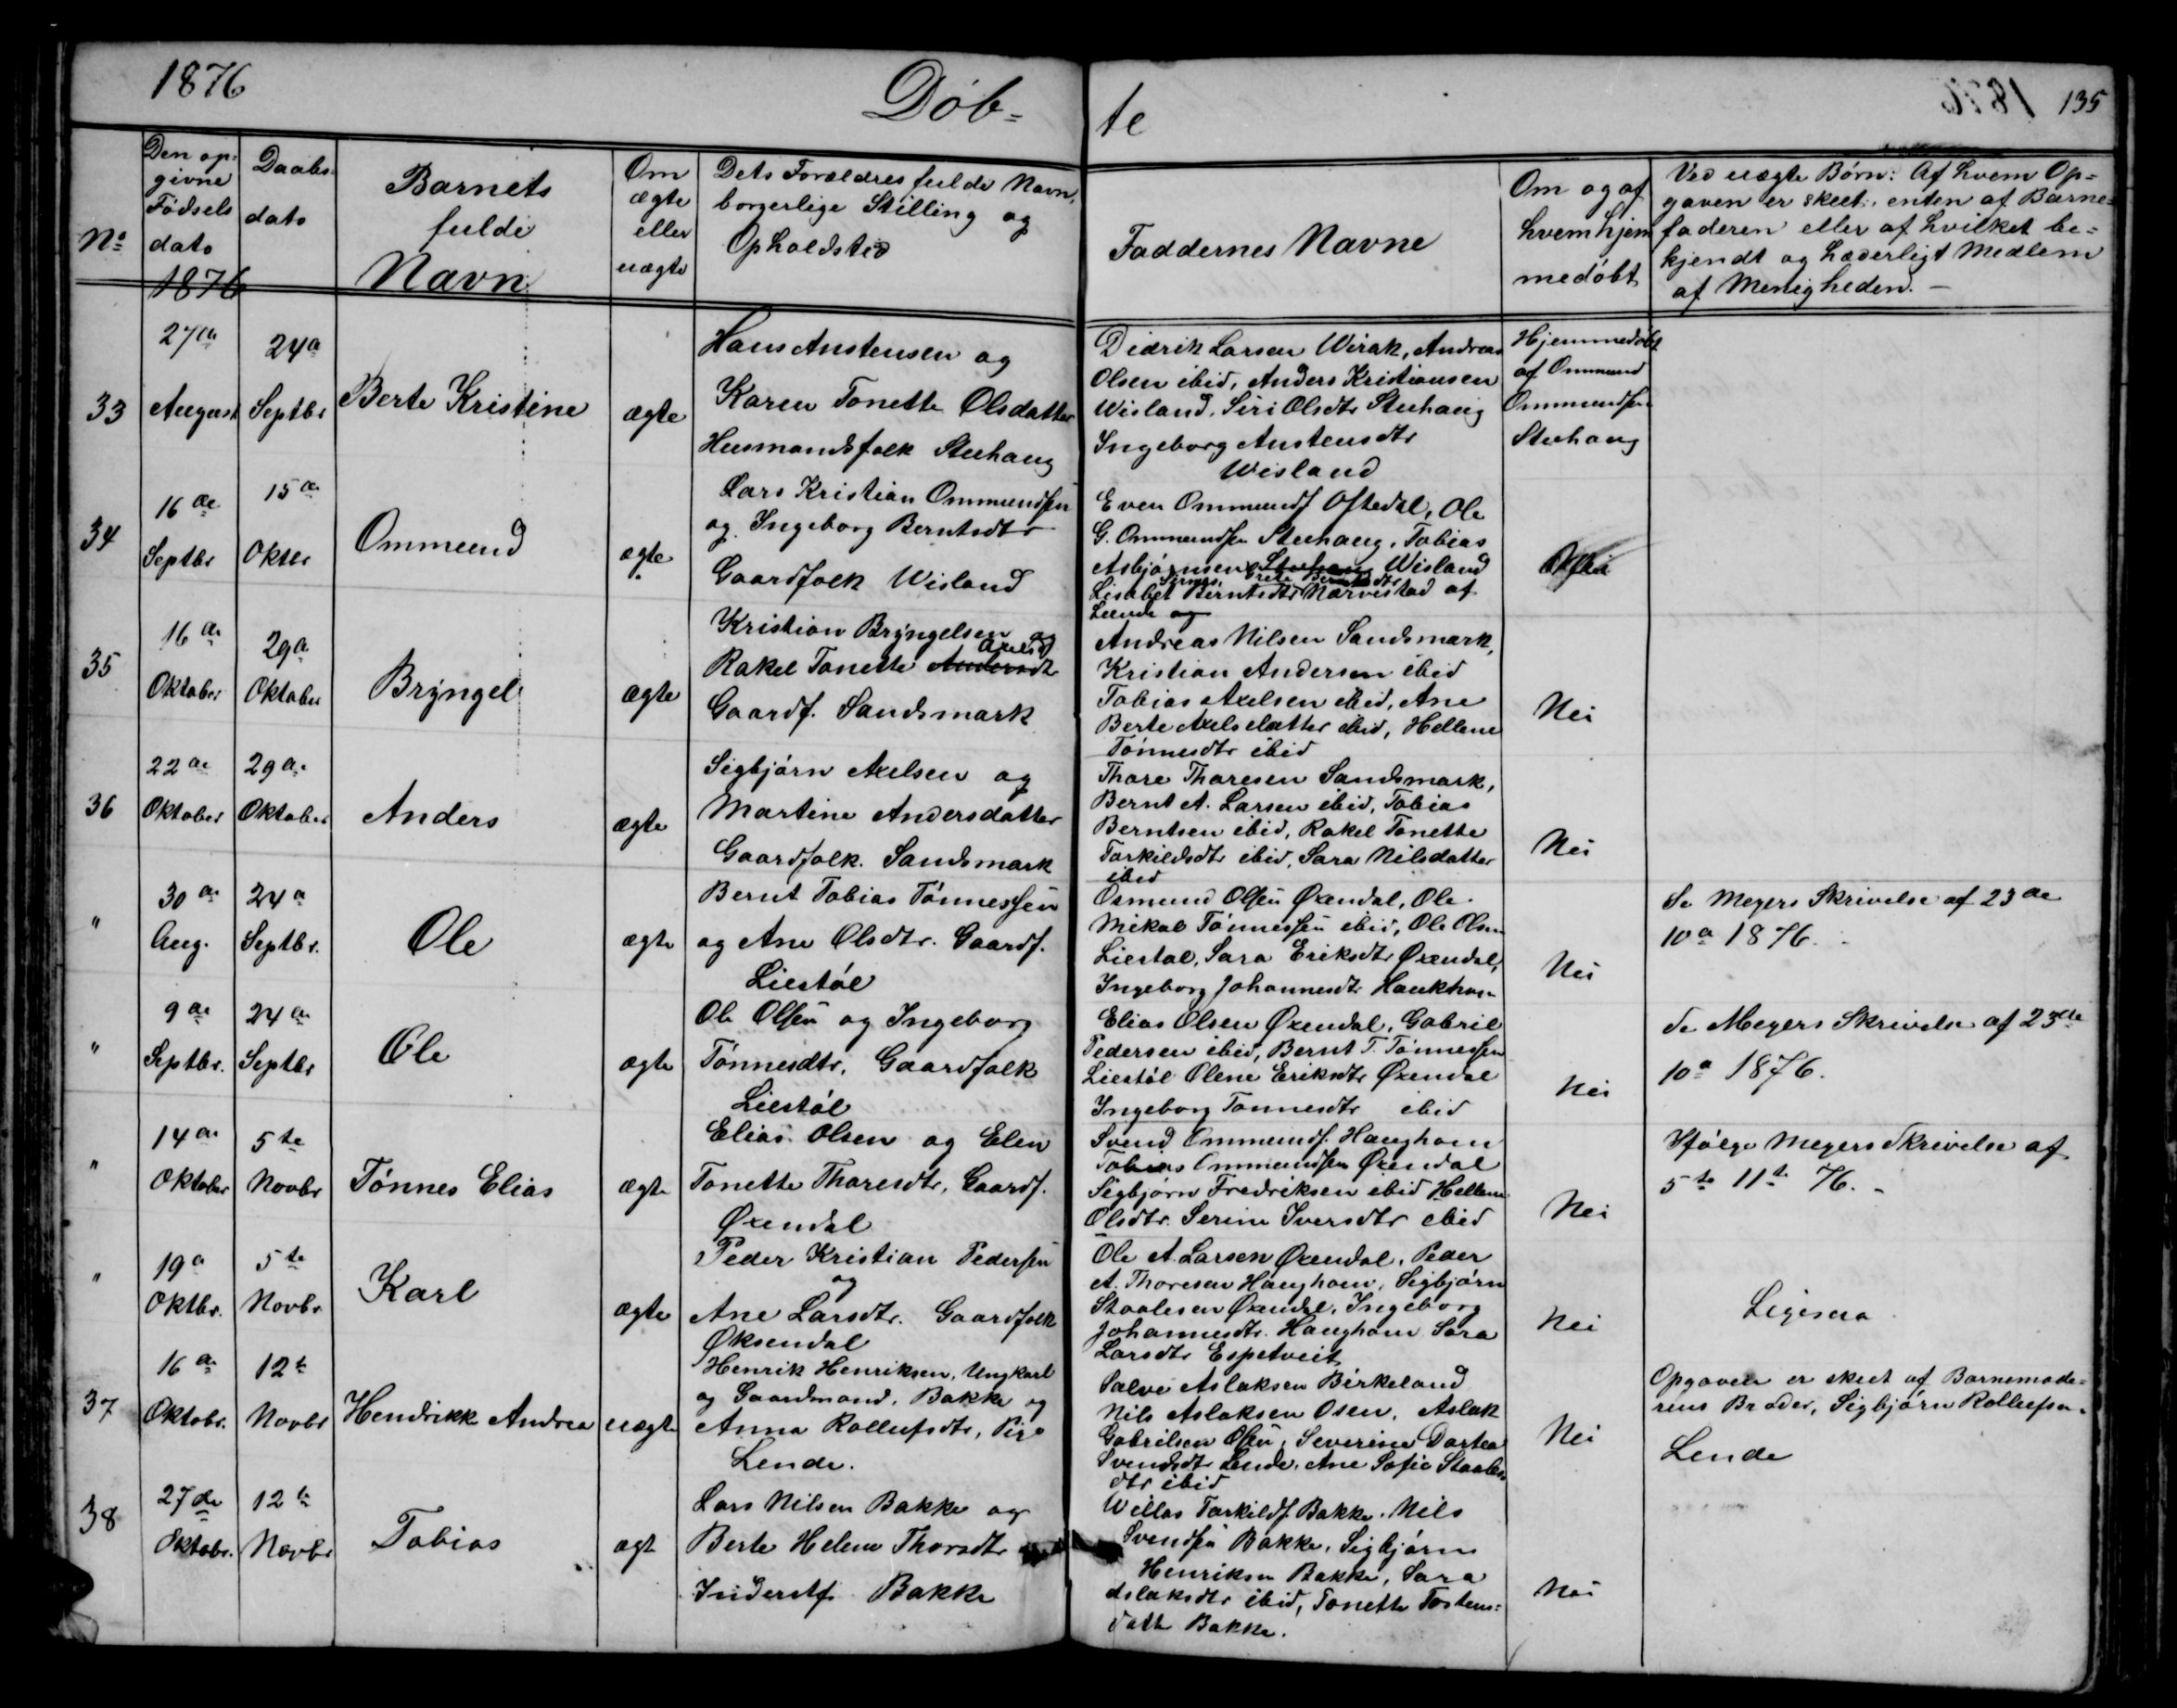 1876
Døb-
te
135
No
Den op-
givne
Fødsels
dato
1876
Daabs-
dato
Barnets
fulde
Navn
Om
ægte
eller
uægte
Dets Forældres fulde Navn,
borgerlige Stilling og
Opholdsted
Faddernes Navne
Om og af
hvem hjem
medøbt
Ved uægte Børn: Af hvem Op-
gaven er skeet, enten af Barne-
faderen eller af hvilket be-
kjendt og hæderligt Medlem
af Menigheden. -
33
27de
August
24a
Septbr
Berte Kristine
ægte
Hans Austensen og
Karen Tonette Olsdatter
Husmandsfolk Stuhaug
Didrik Larsen Wirak, Andreas
Olsen ibid, Anders Kristiansen
Wisland, Siri Olsdtr Stuhaug
Ingeborg Austensdtr
Wisland
Hjemmedøbt
af Ommund
Ommundsen
Stuhaug
34
16de
Septbr
15de
Oktbr
Ommund
ægte
Lars Kristian Ommundsen
og Ingeborg Berntsdtr
Gaardfolk Wisland
Even Ommunds Oftedal, Ole
G. Ommundsen Stuhaug, Tobias
Asbjørnsen Stuhaug Wisland
Berntsdtr
Lisabet Berntsdtr Narvestad af
Lunde og
35
16de
Oktober
29de
Oktober
Brÿngel
ægte
Kristian Brÿngelsen og
Axelsd
Rakel Tonette Andersdtr
Gaardf. Sandsmark
Andreas Nilsen Sandsmark,
Kristian Andersen ibid
Tobias Axelsen ibid, Ane
Berte Axelsdatter ibid, Hellene
Tønnesdtr ibid
Nei
36
22de
Oktober
29de
Oktober
Anders
ægte
Sigbjørn Axelsen og
Martine Andersdatter
Gaardfolk. Sandsmark
Thore Thoresen Sandsmark,
Bernt A. Larsen ibid, Tobias
Berntsen ibid, Rakel Tonette
Torkildsdtr ibid, Sara Nilsdatter
ibid
Nei
"
30de
Aug.
24a
Septbr.
Ole
ægte
Bernt Tobias Tønnessen
og Ane Olsdtr. Gaardf.
Liestøl
Osmund Olsen Øxendal, Ole
Mikal Tønnessen ibid, Ole Olsen
Liestøl, Sara Eriksdtr Øxendal,
Ingeborg Johannesdtr Haukhom
Nei
Se Meyers Skrivelse af 23de
10a 1876.
"
9de
Septbr.
24de
Septbr
Ole
ægte
Ole Olsen og Ingeborg
Tønnesdtr. Gaardfolk
Liestøl
Elias Olsen Øxendal, Gabriel
Pedersen ibid, Bernt T. Tønnessen
Liestøl Olene Eriksdtr Øxendal
Ingeborg Tønnesdtr ibid
Nei
Se Meyers Skrivelse af 23de
10a 1876.
"
14de
Oktober
5te
Novbr
Tønnes Elias
ægte
Elias Olsen og Elen
Tonette Thoresdtr, Gaardf.
Øxendal
Svend Ommunds. Haughom
Tobias Ommundsen Øxendal
Sigbjørn Fredriksen ibid Hellene
Olsdtr. Serine Iversdtr ibid
Nei
Ifølge Meyers Skrivelse af
5te 11te 76. -
"
19a
Oktbr.
5te
Novbr.
Karl
ægte
Peder Kristian Pedersen
og
Ane Larsdtr. Gaardfolk
Øksendal
Ole A. Larsen Øxendal, Peder
A. Thoresen Haughom, Sigbjørn
Staalesen Øxendal, Ingeborg
Johannesdtr. Haughom Sara
Larsdtr Espetveit
Nei
Ligesaa
37
16de
Oktobr.
12te
Novbr
Hendrikke Andrea
uægte
Henrik Henriksen, Ungkarl
og Gaardmand, Bakke og
Anna Rollufsdtr, Pige
Lende.
Salve Aslaksen Birkeland
Nils Aslaksen Osen, Aslak
Gabrilsen Osen, Severine Dortea
Svendsdtr Lende, Ane Sofie Staales
dtr ibid
Nei
Opgaven er skeet af Barnemode-
rens Broder, Sigbjørn Rollufsen
Lende
38
27de
Oktobr.
12te
Novbr
Tobias
ægt
Lars Nilsen Bakke og
Berte Helene Thorsdtr
Inderstf. Bakke
Wellas Torkilds. Bakke, Nils
Svendsen Bakke, Sigbjørn
Henriksen Bakke, Sara
Aslaksdtr ibid, Tonette Tostens-
datter Bakke.
Nei